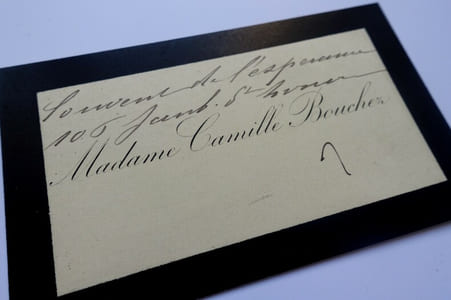 Couvent de l'espérance
106 faub. St honoré
Madame Camille Bouchez